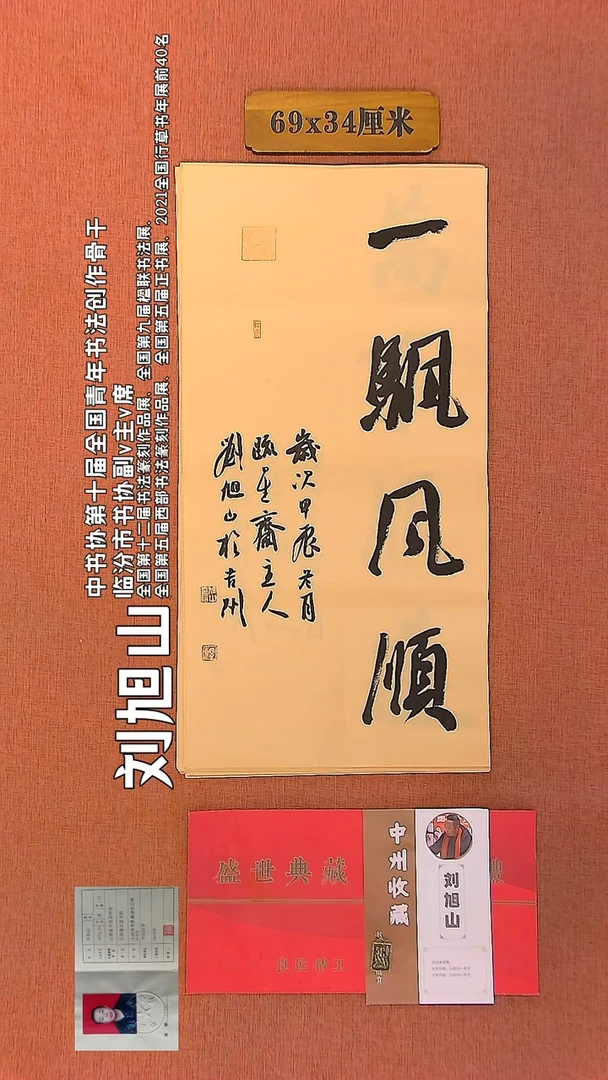 69x34厘米
一颿风順
歲次甲辰冬月
齋主人
劉旭山於吉州
中书协第十届全国青年书法创作骨干
临汾市书协副v主v席
全国第十二届书法篆刻作品展、全国第九届楹联书法展、
全国第五届西部书法篆刻作品展、全国第五届正书展、2021全国行草书年展前40名
刘旭山
盛世典藏
良匠精工
中州收藏
刘旭山